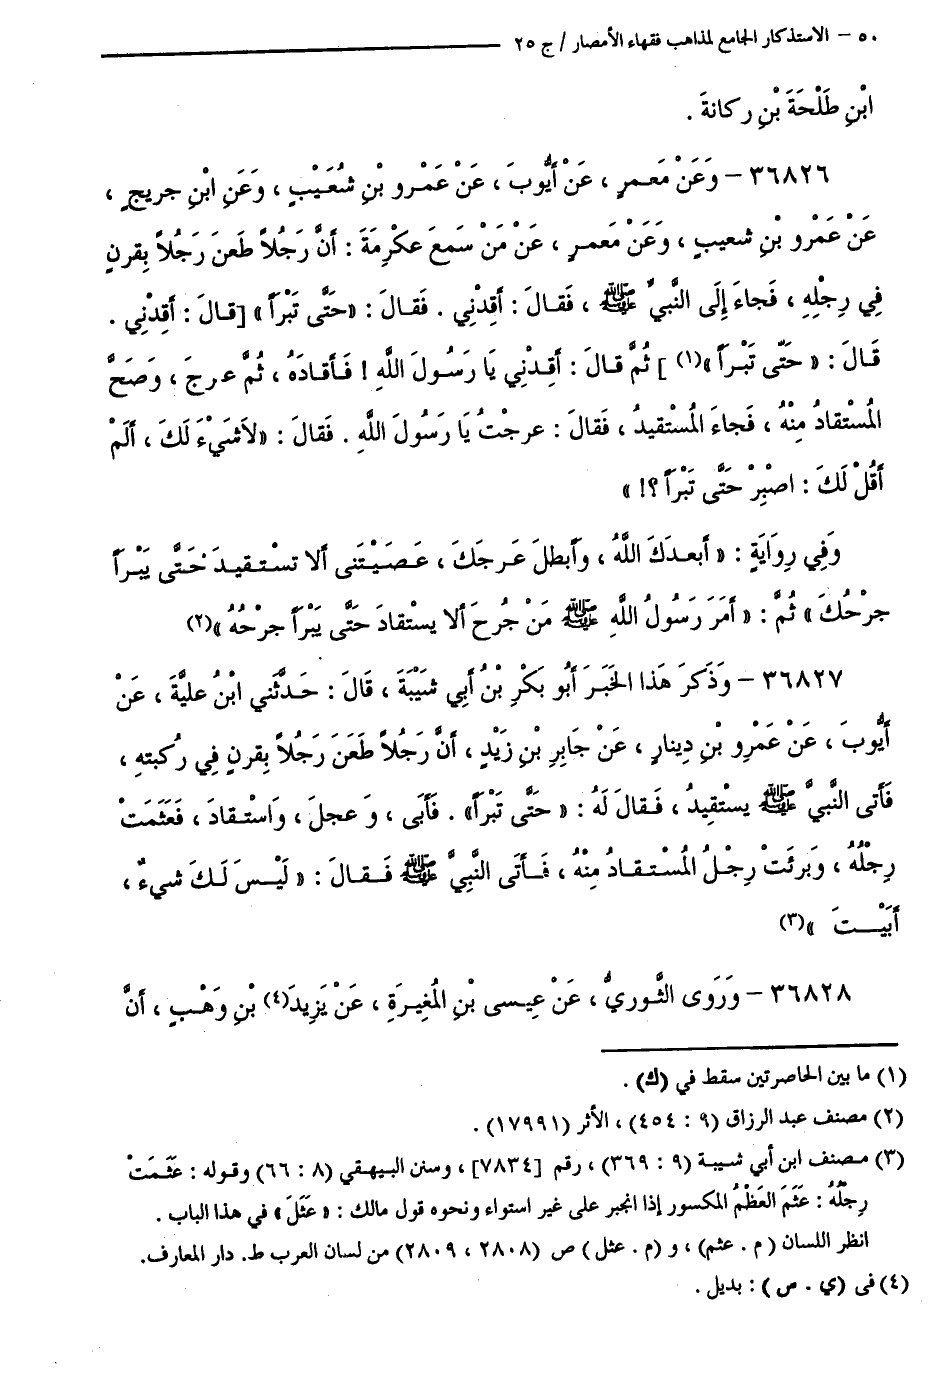 ٥٠ – الاستذكار الجامع لمذاهب فقهاء الأمصار / ج ٢٥
ابْنِ طَلْحَةَ بْنِ ركانةَ .
٣٦٨٢٦ – وَعَنْ مَعمرٍ ، عَنْ أَيُّوبَ ، عَنْ عَمْرِو بْنِ شُعَيْبٍ ، وَعَنِ ابْنِ جريجٍ ،
عَنْ عَمْرِو بْنِ شعيبٍ ، وَعَنْ مَعمرٍ ، عَنْ مَنْ سَمعَ عكْرِمَةَ : أَنَّ رَجُلاً طَعنَ رَجُلاً بِقرنٍ
فِي رِجلِهِ ، فَجاءَ إِلَى النَّبيِّ ﷺ ، فَقالَ : أَقِدْنِي . فَقالَ : «حَتَّى تَبْرَأَ» [قالَ : أَقِدْنِي .
قَالَ : « حَتّى تَبْرَأَ »(١) ] ثُمَّ قالَ : أَقِدْنِي يَا رَسُولَ اللَّهِ ! فَأَقادَهُ ، ثُمَّ عرجَ ، وَصَحَّ
المُسْتقادُ مِنْهُ ، فَجاءَ المُسْتقيدُ ، فَقالَ : عرجْتُ يَا رَسُولَ اللَّهِ . فَقالَ : «لاَشَيْءَ لَكَ ، أَلَمْ
أَقُلْ لَكَ : اصْبِرْ حَتَّى تَبْرَأَ ؟! »
وَفِي رِوَايَةٍ : « أَبعدَكَ اللَّهُ ، وأَبطلَ عَرجَكَ ، عَصَيْتَنى أَلا تسْتقيدَ حَتَّى يَبْرَأَ
جرْحُكَ » ثُمَّ : « أَمَرَ رَسُولُ اللَّهِ ﷺ مَنْ جُرحَ أَلا يسْتقادَ حَتَّى يَبْرَأَ جرْحُهُ »(٢)
٣٦٨٢٧ – وَذَكَرَ هَذا الخَبَرَ أَبُو بَكْرِ بْنُ أَبِي شَيْبَةَ ، قَالَ : حَدَّثَنِي ابْنُ عليَّةَ ، عَنْ
أَيُّوبَ ، عَنْ عَمْرِو بْنِ دِينارٍ ، عَنْ جَابِرِ بْنِ زَيْدٍ ، أَنَّ رَجُلاً طَعَنَ رَجُلاً بِقرنٍ فِي رُكبتهِ ،
فَأَتى النَّبيَّ ﷺ يسْتقِيدُ ، فَقالَ لَهُ : « حَتَّى تَبْرَأَ» . فَأَبَى ، وَعجلَ ، وَاسْتقادَ ، فَعَثَمَتْ
رِجلُهُ ، وَبَرِئَتْ رِجلُ المُسْتقادُ مِنْهُ ، فَأَتَى النَّبيَّ ﷺ فَقالَ : « لَيْسَ لَكَ شيءٌ ،
أَبَيْتَ »(٣)
٣٦٨٢٨ – وَرَوى الثَّوريُّ ، عَنْ عِيسى بْنِ المُغِيرَةِ ، عَنْ يَزِيدَ(٤) بْنِ وَهْبٍ ، أَنَّ
(١) ما بين الحاصرتين سقط في (ك) .
(٢) مصنف عبد الرزاق (٩ : ٤٥٤) ، الأثر (١٧٩٩١) .
(٣) مصنف ابن أبي شيبة (٩ : ٣٦٩) ، رقم [٧٨٣٤] ، وسنن البيهقي (٨ : ٦٦) وقوله : عَثَمَتْ
رِجلُهُ : عَثَمَ العَظْمُ المكسور إذا انجبر على غير استواء ونحوه قول مالك : « عَثَلَ » في هذا الباب .
انظر اللسان ( م . عثم) ، و (م . عثل ) ص (٢٨٠٨ ، ٢٨٠٩) من لسان العرب ط. دار المعارف.
(٤) فى (ي . ص ) : بديل .